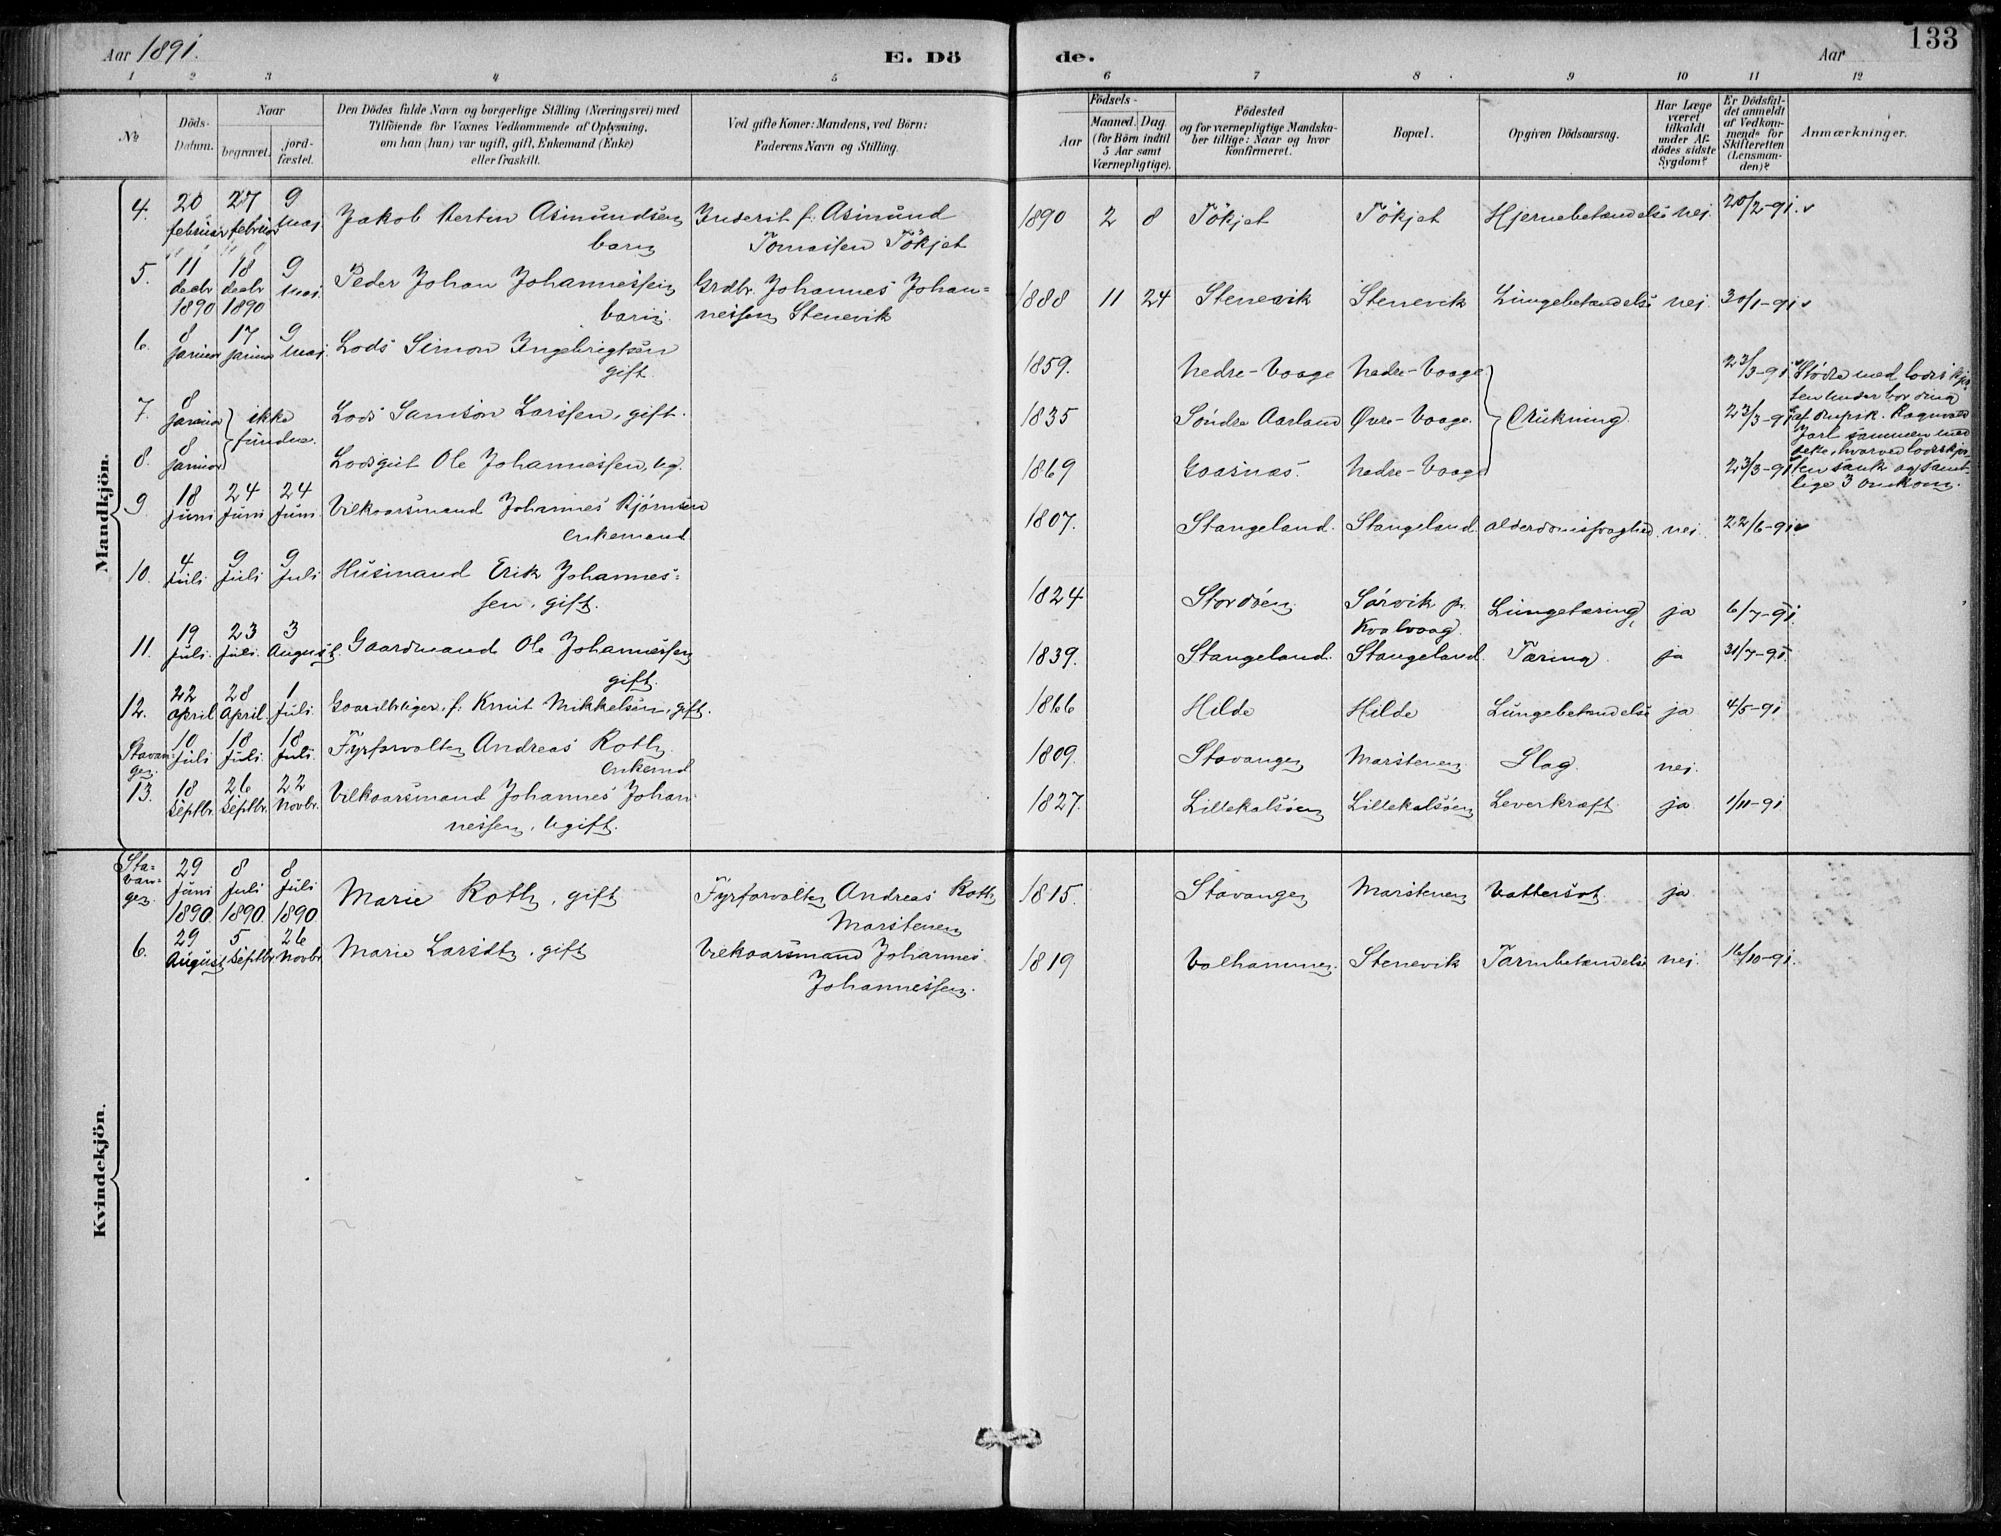 Aar 1891. E. Dö de. Aar 133
1 2 3 4 5 6 7 8 9 10 11 12
No
Döds-Datum.
Naar
begravet.
jord-fæstet.
Den Dödes fulde Navn og borgerlige Stilling (Næringsvei) med
Tilföiende for Voxnes Vedkommende af Oplysning,
om han (hun) var ugift, gift, Enkemand (Enke)
eller fraskilt.
Ved gifte Koner: Mandens, ved Börn:
Faderens Navn og Stilling.
Födsels-
Aar
Maaned. Dag
(for Börn indtil
5 Aar samt
Værnepligtige).
Födested
og for værnepligtige Mandska-
ber tillige: Naar og hvor
Konfirmeret.
Bopæl.
Opgiven Dödsaarsag.
Har Læge
været
tilkaldt
under Af-
dödes sidste
Sygdom?
Er Dödsfal-
det anmeldt
af Vedkom-
mende for
Skifteretten
(Lensman-
den)?
Anmærkninger.
Mandkjön.
4. 20 februar 27 februar 9 Maj Jakob Bertin Asmundsen barn Inderst f. Asmund Tomassen Tökjet 1890 2 8 Tökjet Tökjet Hjernebetændelse nej. 20/2-91.
5. 11 decbr 1890 18 decbr 1890 9 Maj. Peder Johan Johannessen barn Grdbr. Johannes Johan-
nessen Stenevik 1888 11 24 Stenevik Stenevik Lungebetændelse nej. 30/1-91
6. 8 januar 17 januar 9 Maj. Lods Simon Ingebrigtsen gift. 1859. Nedre-Vaage Nedre-Vaage 23/3-91
7. 8 januar ikke fundne. Lods Samson Larssen, gift. 1835 Söndre Aarland Øvre-Vaage. Drukning. 23/3-91
8. 8 januar Lodsgut Ole Johannessen, ug. 1869 Gaasnæs. Nedre-Vaage 23/3-91
Stödte med lodsskjö-
ten under bording
af Dmpsk. Ragnvald
Jarl sammen med
dette, hvorved lodsskjö-
ten sank og samt-
lige 3 omkom.
9. 18 Juni 24 Juni 24 Juni. Vilkaarsmand Johannes Bjørnsen enkemand 1807. Stangeland. Stangeland. Alderdomssvaghed. nej. 22/6-91
10. 4 Juli 9 Juli 9 Juli Husmand Erik Johannes-
sen, gift. 1824 Stordöen. Sørvik pr. Kvalvaag. Lungetæring, ja 6/7-91.
11. 19 Juli. 23 Juli. 3 August. Gaardmand Ole Johannessen gift. 1839. Stangeland. Stangeland. Tæring. ja 31/7-91.
12. 22 April 28 April. 1 Juli. Gaardbruger. f. Knut Mikkelsen, gift. 1866 Hilde Hilde Lungebetændelse ja 4/5-91
Stavanger. 10 Juli 18 Juli. 18 Juli. Fyrforvalter Andreas Roth. enkemd 1809. Stavanger Marstenen. Slag. nej.
13. 18 Septbr. 26 Septbr. 22 Novbr. Vilkaarsmand Johannes Johan-
nessen, ugift. 1827. Lillekalsöen Lillekalsöen Leverkræft. ja 1/11-91
Kvindekjön.
Sta-
van-
ger. 29 Juni 1890. 8 Juli 1890. 8 Juli 1890 Marie Roth, gift Fyrforvalter Andreas Roth Marstenen 1815. Stavanger Marstenen Vattersot. ja
6. 29 August 5 Septbr. 26 Novbr. Marie Larsdtr, gift Vilkaarsmand Johannes Johannessen. 1819 Valhammer. Stenevik Tarmbetændelse nej. 16/10-91.